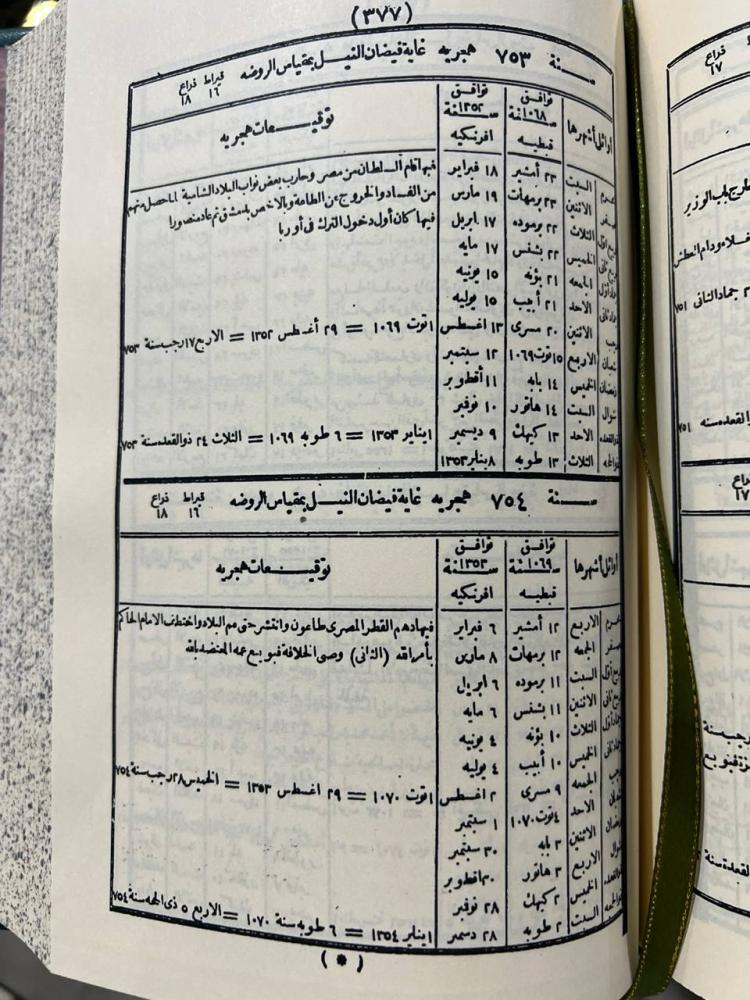 (٣٧٧)
ســـنة ٧٥٣ هجريه غاية فيضان النيـــل بمقياس الروضه قيراط ١٦ ذراع ١٨
أوائل أشهرها
توافق سنة ١٠٦٨ قبطيه
توافق سنة ١٣٥٢ افرنكيه
توقيعـــات هجريه
محرم السبت ٢٣ أمشير ١٨ فبراير
صفر الاثنين ٢٣ برمهات ١٩ مارس
ربيع أول الثلاث ٢٢ برموده ١٧ ابريل
ربيع ثانى الخميس ٢٢ بشنس ١٧ مايه
جماد أول الجمعه ٢١ بؤنه ١٥ يونيه
جماد ثانى الاحد ٢١ أبيب ١٥ يوليه
رجب الاثنين ٢٠ مسرى ١٣ اغسطس
شعبان الاربع ١٥ توت ١٠٦٩ ١٢ سبتمبر
رمضان الخميس ١٤ بابه ١١ أقطوبر
شوال السبت ١٤ هاتور ١٠ نوفبر
ذوالقعده الاحد ١٣ كيهك ٩ ديسمبر
ذوالحجه الثلاث ١٣ طوبه ٨ يناير ١٣٥٣
فيها قام السلطان من مصر وحارب بعض نواب البلاد الشامية لما حصل منهم
من الفساد والخروج عن الطاعة وبالاخص بدمشق ثم عاد منصورا
فيها كان أول دخول الترك فى أوربا
١ توت ١٠٦٩ = ٢٩ أغسطس ١٣٥٢ = الاربع ١٧ رجب سنة ٧٥٣
١ يناير ١٣٥٣ = ٦ طوبه ١٠٦٩ = الثلاث ٢٤ ذوالقعده سنة ٧٥٣
ســـنة ٧٥٤ هجريه غاية فيضان النيـــل بمقياس الروضه قيراط ١٦ ذراع ١٨
أوائل أشهرها
توافق سنة ١٠٦٩ قبطيه
توافق سنة ١٣٥٣ افرنكيه
توقيعـــات هجريه
محرم الاربع ١٢ أمشير ٦ فبراير
صفر الجمعه ١٢ برمهات ٨ مارس
ربيع أول السبت ١١ برموده ٦ ابريل
ربيع ثانى الاثنين ١١ بشنس ٦ مايه
جماد أول الثلاث ١٠ بؤنه ٤ يونيه
جماد ثانى الخميس ١٠ أبيب ٤ يوليه
رجب الجمعه ٩ مسرى ٢ اغسطس
شعبان الاحد ٤ توت ١٠٧٠ ١ سبتمبر
رمضان الاثنين ٣ بابه ٣٠ سبتمبر
شوال الاربع ٣ هاتور ٣٠ اقطوبر
ذوالقعده الخميس ٢ كيهك ٢٨ نوفبر
ذوالحجه السبت ٢ طوبه ٢٨ دسمبر
فيها دهم القطر المصرى طاعون وانتشر حتى عم البلاد واختطف الامام الحاكم
بأمر الله (الثانى) وصى الخلافة فبويع عمه المعتضد بالله
١ توت ١٠٧٠ = ٢٩ اغسطس ١٣٥٣ = الخميس ٢٨ رجب سنة ٧٥٤
١ يناير ١٣٥٤ = ٦ طوبه سنة ١٠٧٠ = الاربع ٥ ذى الحجه سنة ٧٥٤
(*)